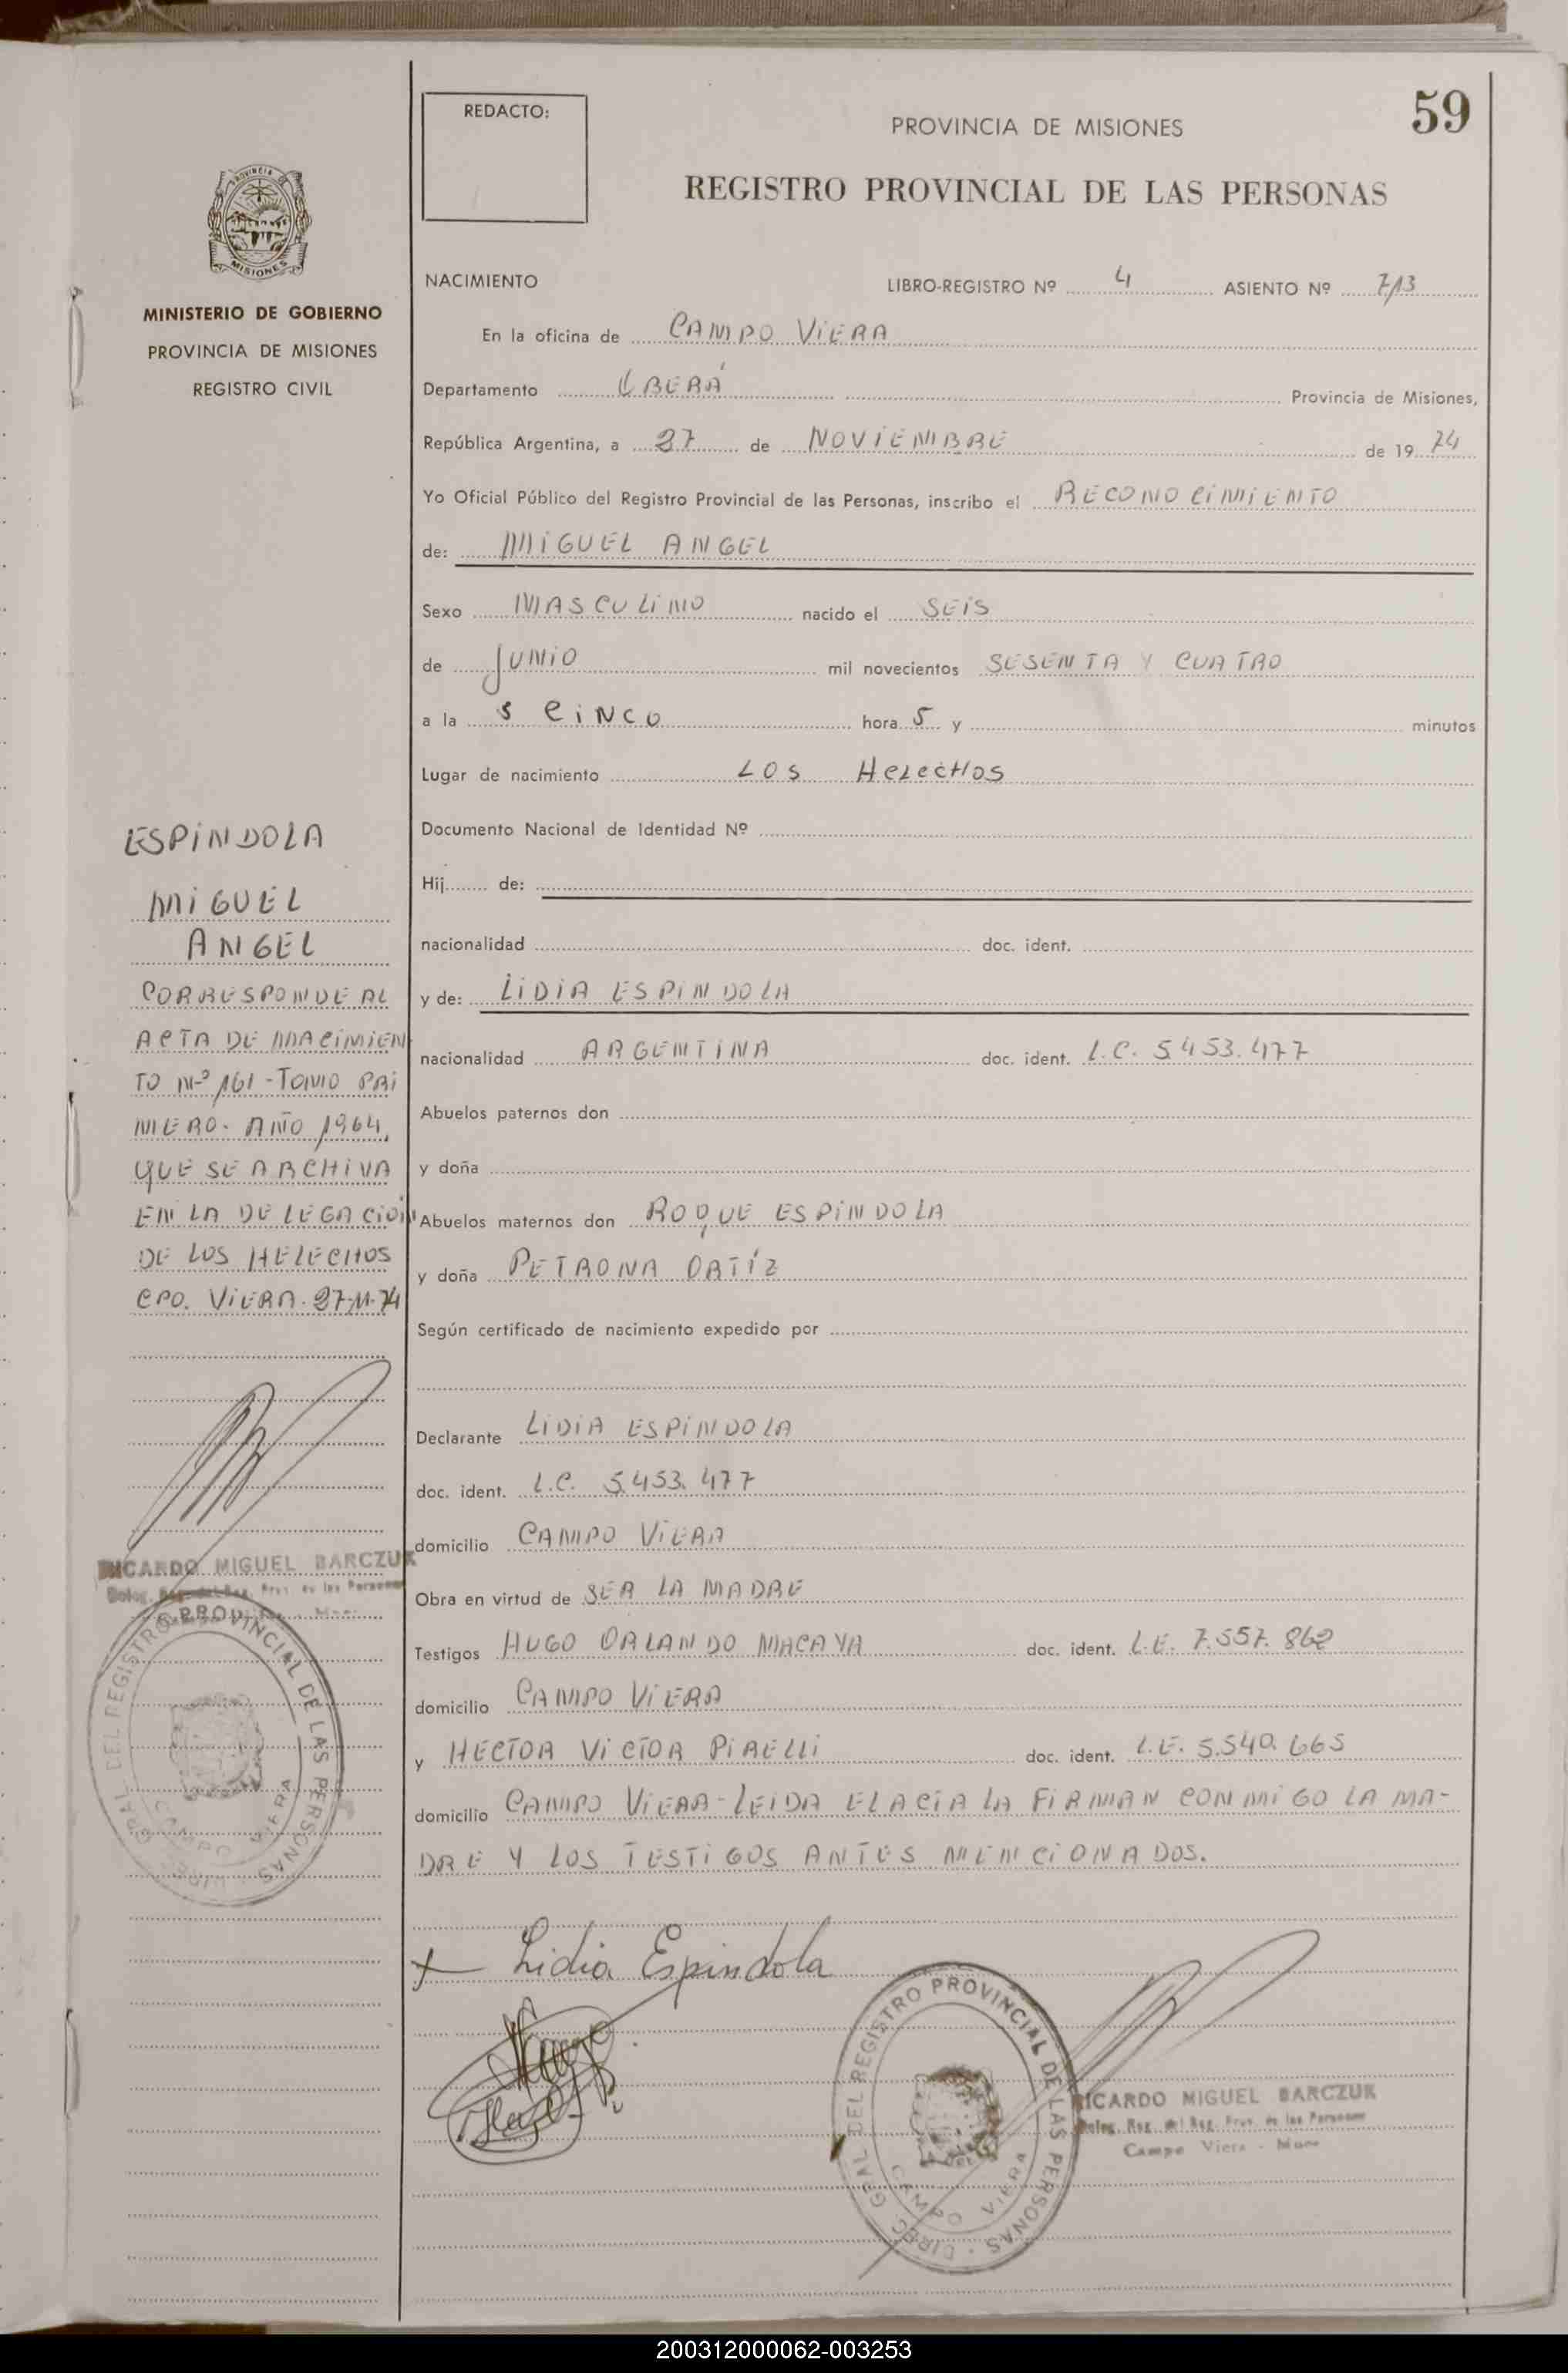 REDACTO:
PROVINCIA DE MISIONES
59
REGISTRO PROVINCIAL DE LAS PERSONAS
PROVINCIA DE
MISIONES
MINISTERIO DE GOBIERNO
PROVINCIA DE MISIONES
REGISTRO CIVIL
NACIMIENTO LIBRO-REGISTRO Nº 4 ASIENTO Nº 713
En la oficina de CAMPO VIERA
Departamento OBERÁ Provincia de Misiones,
República Argentina, a 27 de NOVIEMBRE de 19 74
Yo Oficial Público del Registro Provincial de las Personas, inscribo el RECONOCIMIENTO
de: MIGUEL ANGEL
Sexo MASCULINO nacido el SEIS
de JUNIO mil novecientos SESENTA Y CUATRO
a la s CINCO hora 5 y minutos
Lugar de nacimiento LOS HELECHOS
Documento Nacional de Identidad Nº
Hij de:
nacionalidad doc. ident.
y de: LIDIA ESPINDOLA
nacionalidad ARGENTINA doc. ident. L.C. 5.453.477
Abuelos paternos don
y doña
Abuelos maternos don ROQUE ESPINDOLA
y doña PETRONA ORTÍZ
Según certificado de nacimiento expedido por
Declarante LIDIA ESPINDOLA
doc. ident. L.C. 5.453.477
domicilio CAMPO VIERA
Obra en virtud de SER LA MADRE
Testigos HUGO ORLANDO MACAYA doc. ident. L.E. 7.557.862
domicilio CAMPO VIERA
y HECTOR VICTOR PIRELLI doc. ident. L.E. 5.540.665
domicilio CAMPO VIERA-LEIDA EL ACTA LA FIRMAN CONMIGO LA MA-
DRE Y LOS TESTIGOS ANTES MENCIONADOS.
Lidia Espindola
ESPINDOLA
MIGUEL
ANGEL
CORRESPONDE AL
ACTA DE NACIMIEN
TO Nº 161 - TOMO PRI
MERO. AÑO 1964,
QUE SE ARCHIVA
EN LA DELEGACION
DE LOS HELECHOS
CPO. VIERA. 27-11-74
RICARDO MIGUEL BARCZUK
DIREC. GRAL DEL REGISTRO PROVINCIAL DE LAS PERSONAS
CAMPO VIERA
DIREC. GRAL DEL REGISTRO PROVINCIAL DE LAS PERSONAS
CAMPO VIERA
RICARDO MIGUEL BARCZUK
Deleg. Reg. del Reg. Prov. de las Personas
Campo Viera - Mnes
200312000062-003253